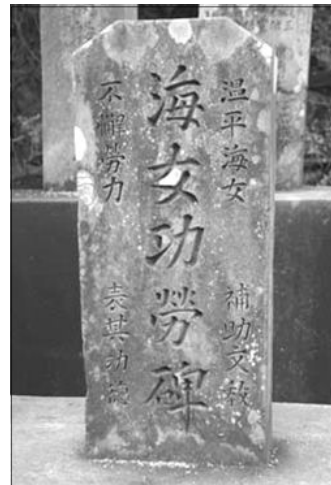 温平海女 補助文敎
海女功勞碑
不憚勞力 表其功德